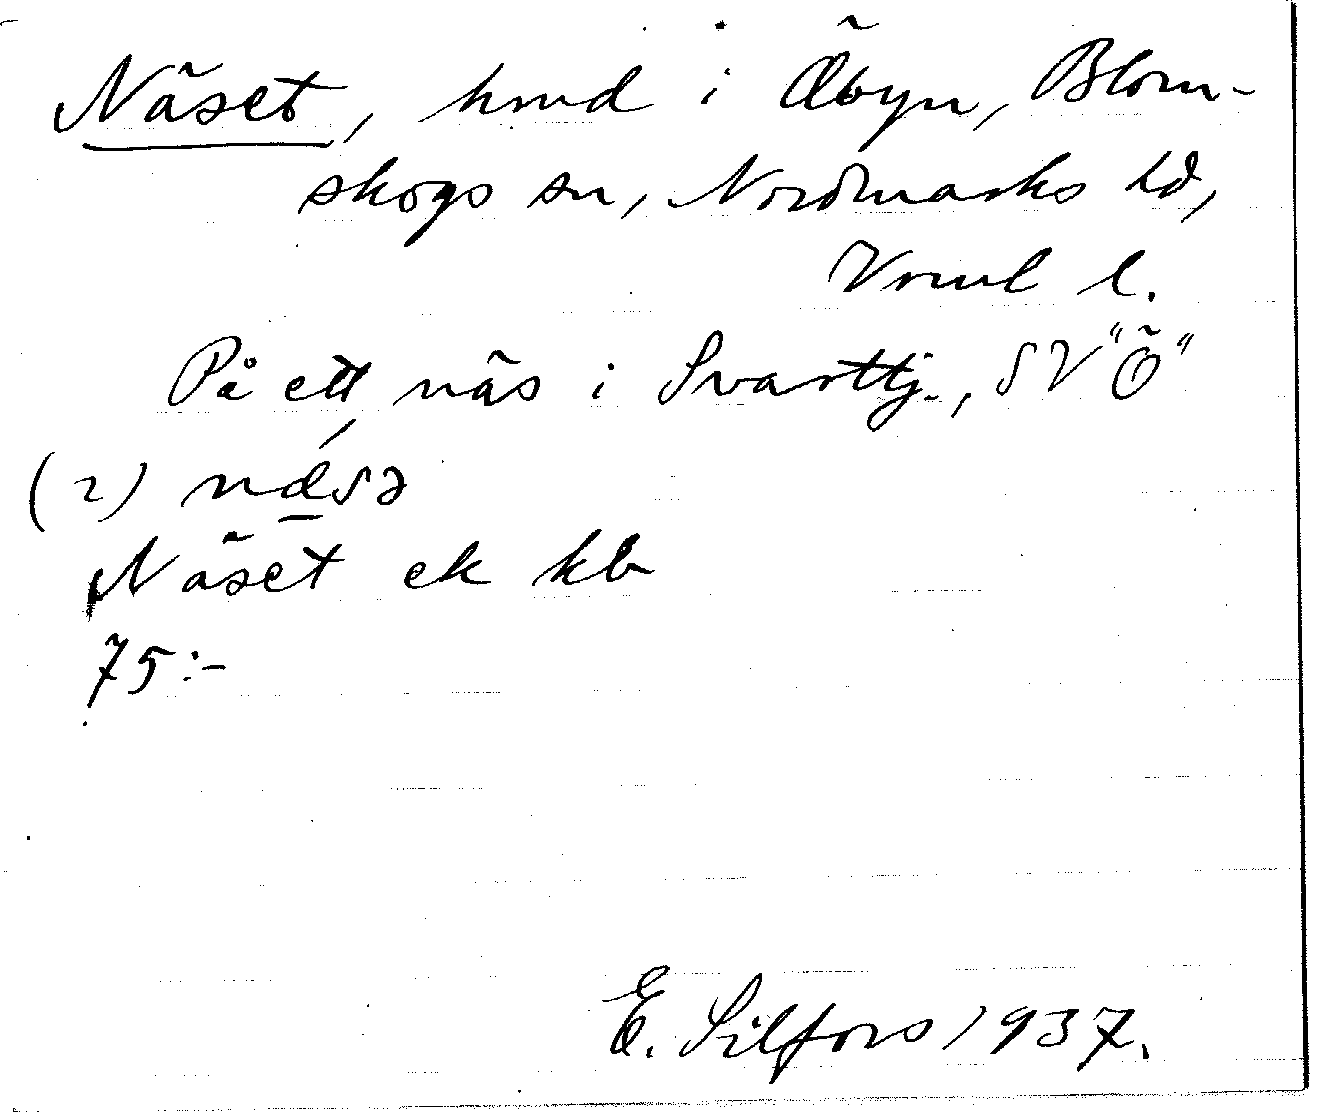 Näset, hmd i Öbyn, Blom-
skogs sn, Nordmarks hd,
Vrml l.
På ett näs i Svarttj., SV "Ö"
(2) nǽ̲sə
Näset ek kb
75:-
E. Silfors 1937.